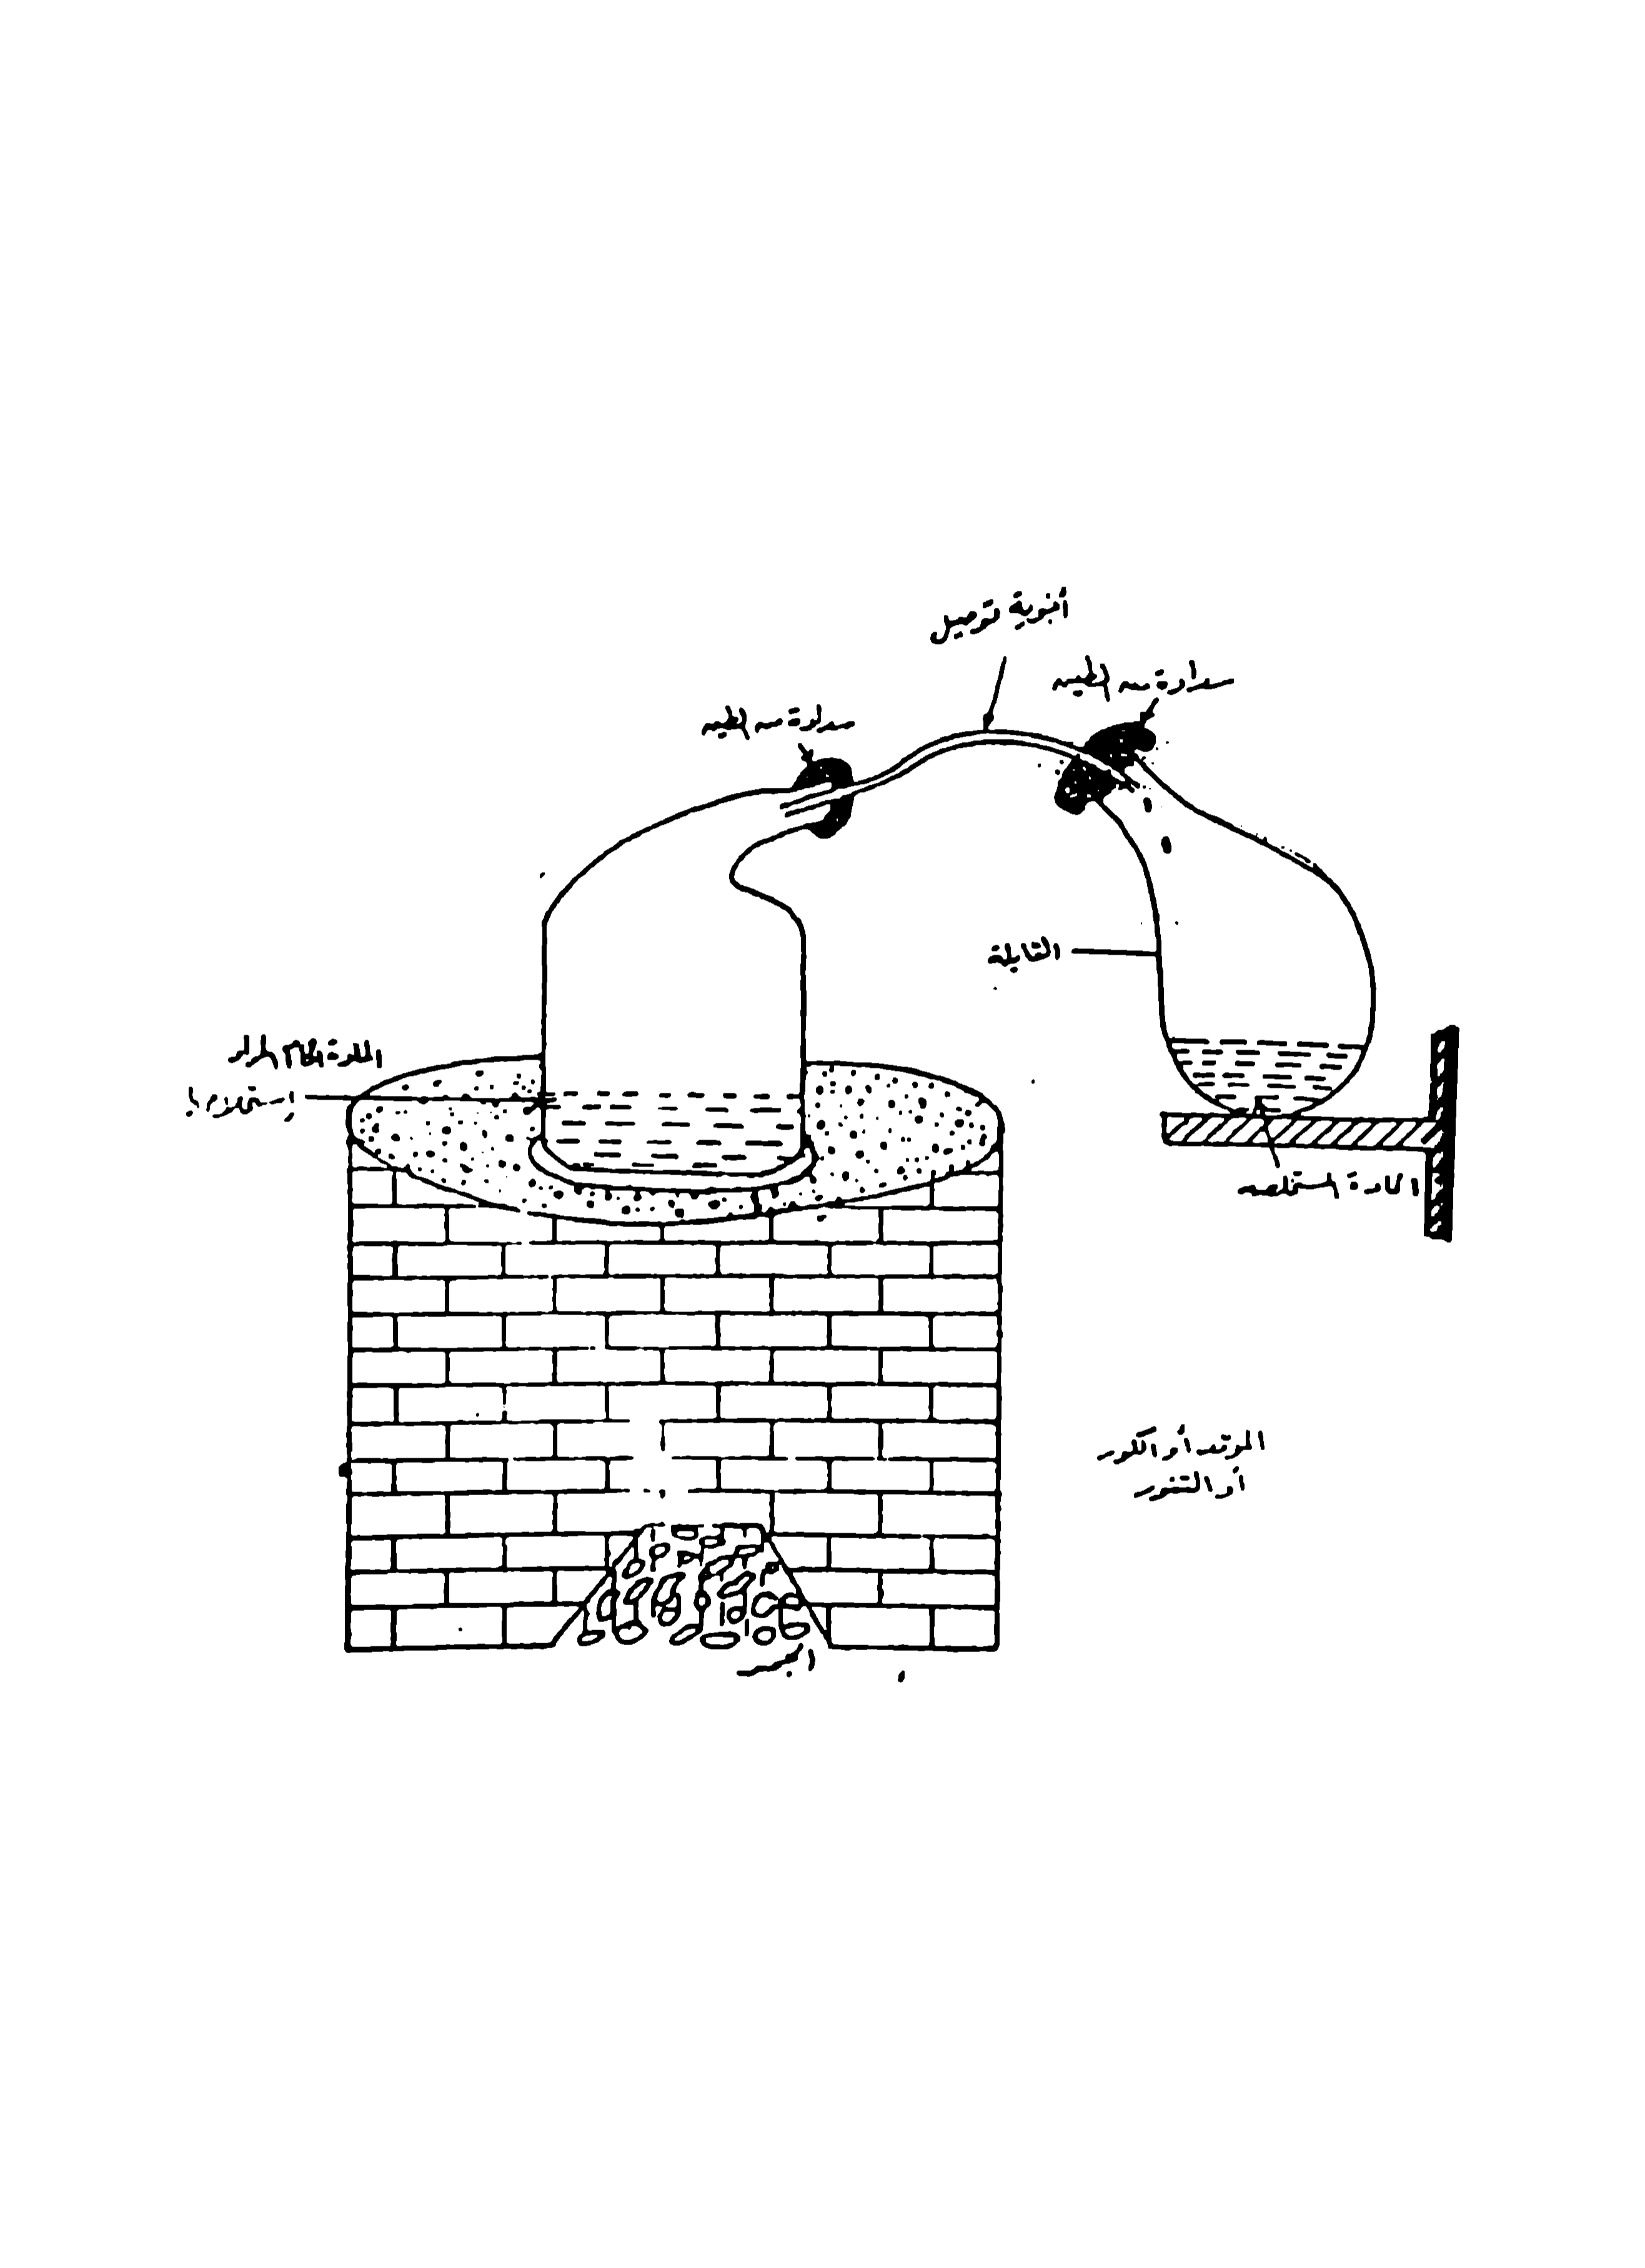 أنبوبة توصيل
سدادة من الطين
سدادة من الطين
القابلة
المادة الخام المراد
إستخلاصها
المادة المستخلصه
الموقد أو الكور
أو التنور
الجمر